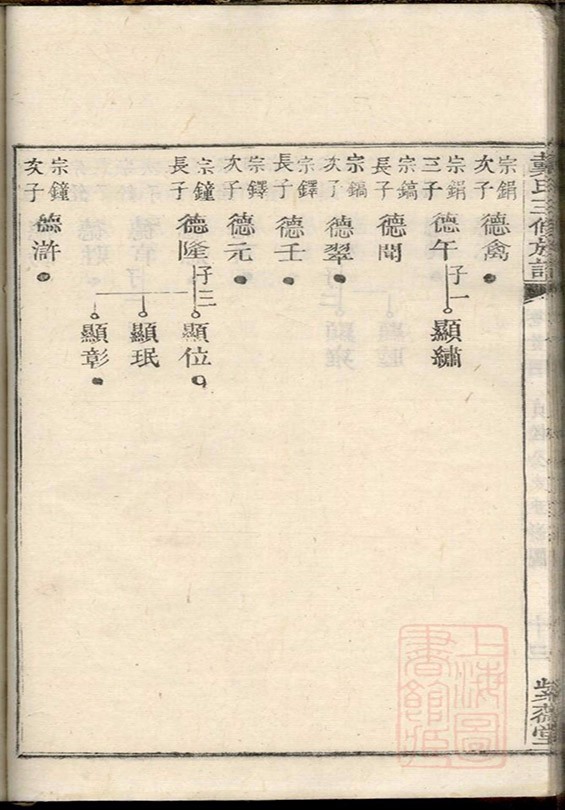 戴氏三修族譜
宗鋗次子 德禽
宗鋗三子 德午 子一 顯繡
宗鎬長子 德閏
宗鍋次子 德翠
宗鐸長子 德壬
宗鐸次子 德元
宗鐘長子 德隆 子三 顯位
顯珉
顯彰
宗鐘次子 德滸
上海圖書館藏